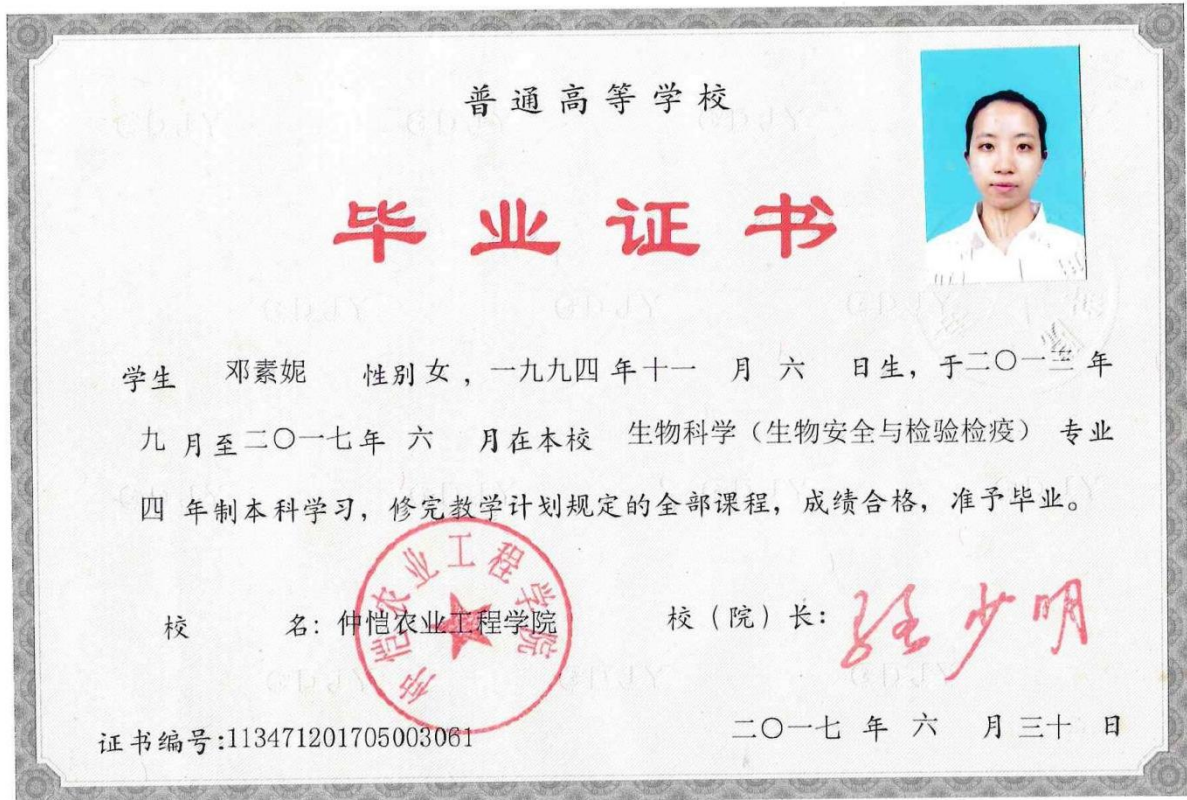 普通高等学校
毕业证书
学生 邓素妮 性别 女 ，一九九四 年 十一 月 六 日生，于二〇一三 年
九 月至二〇一七年 六 月在本校 生物科学（生物安全与检验检疫） 专业
四 年制本科学习，修完教学计划规定的全部课程，成绩合格，准予毕业。
校 名：仲恺农业工程学院
仲恺农业工程学院
校（院）长：
证书编号:113471201705003061
二〇一七 年 六 月 三十 日
GDJY